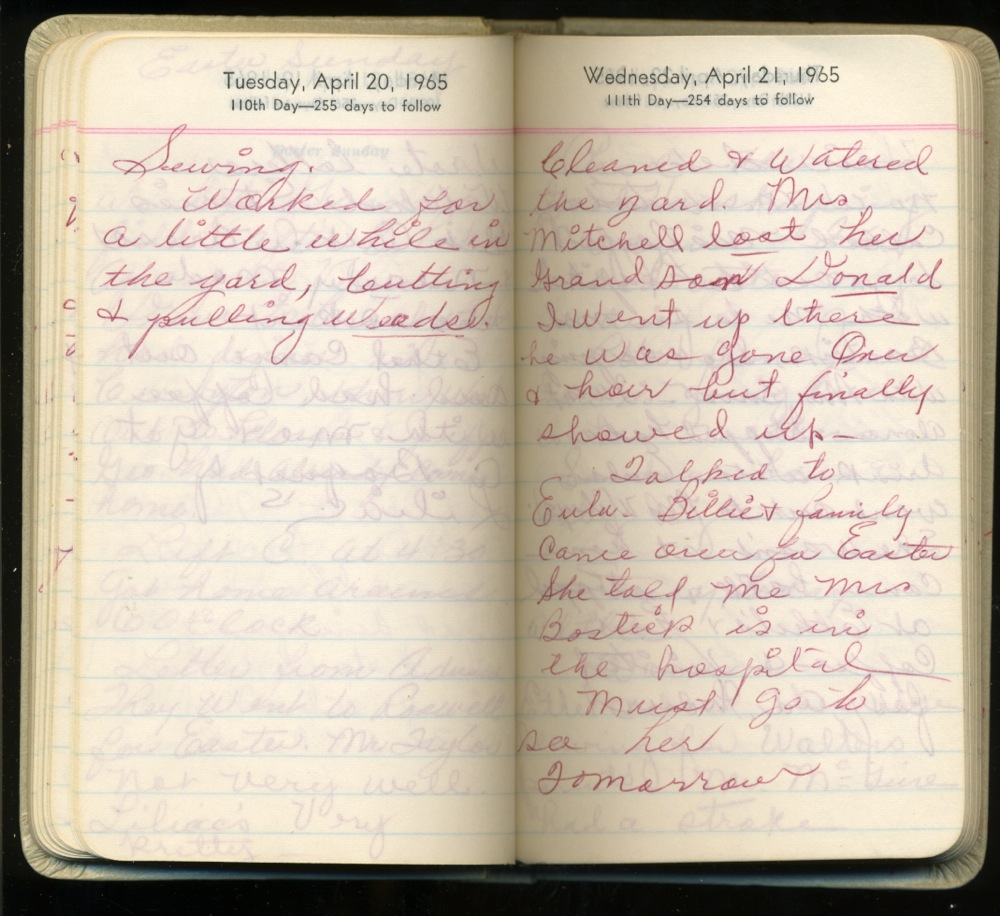 Tuesday, April 20, 1965
110th Day—255 days to follow
Sewing.
Worked for
a little while in
the yard, cutting
& pulling weeds.
Wednesday, April 21, 1965
111th Day—254 days to follow
Cleaned & Watered
the yard. Mrs
Mitchell lost her
Grand son Donald
I Went up there
he was gone Over
& hour but finally
showed up—
Talked to
Eula. Billie & family
Came over for Easter
She tell me Mrs
Bostick is in
the hospital
Must go to
see her
Tomorrow